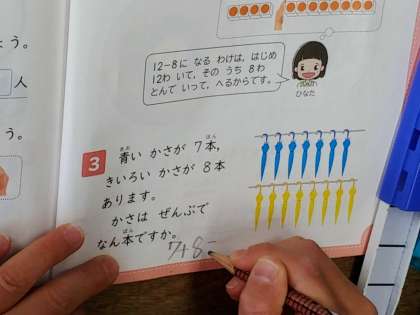 ょう。
人
う。
12-8に なる わけは, はじめ
12わ いて, その うち 8わ
とんで いって, へるからです。
ひなた
3
青い かさが 7本,
あお
ぼん
きいろい かさが 8本
あります。
かさは ぜんぶで
なん本ですか。
ぼん
7+8=